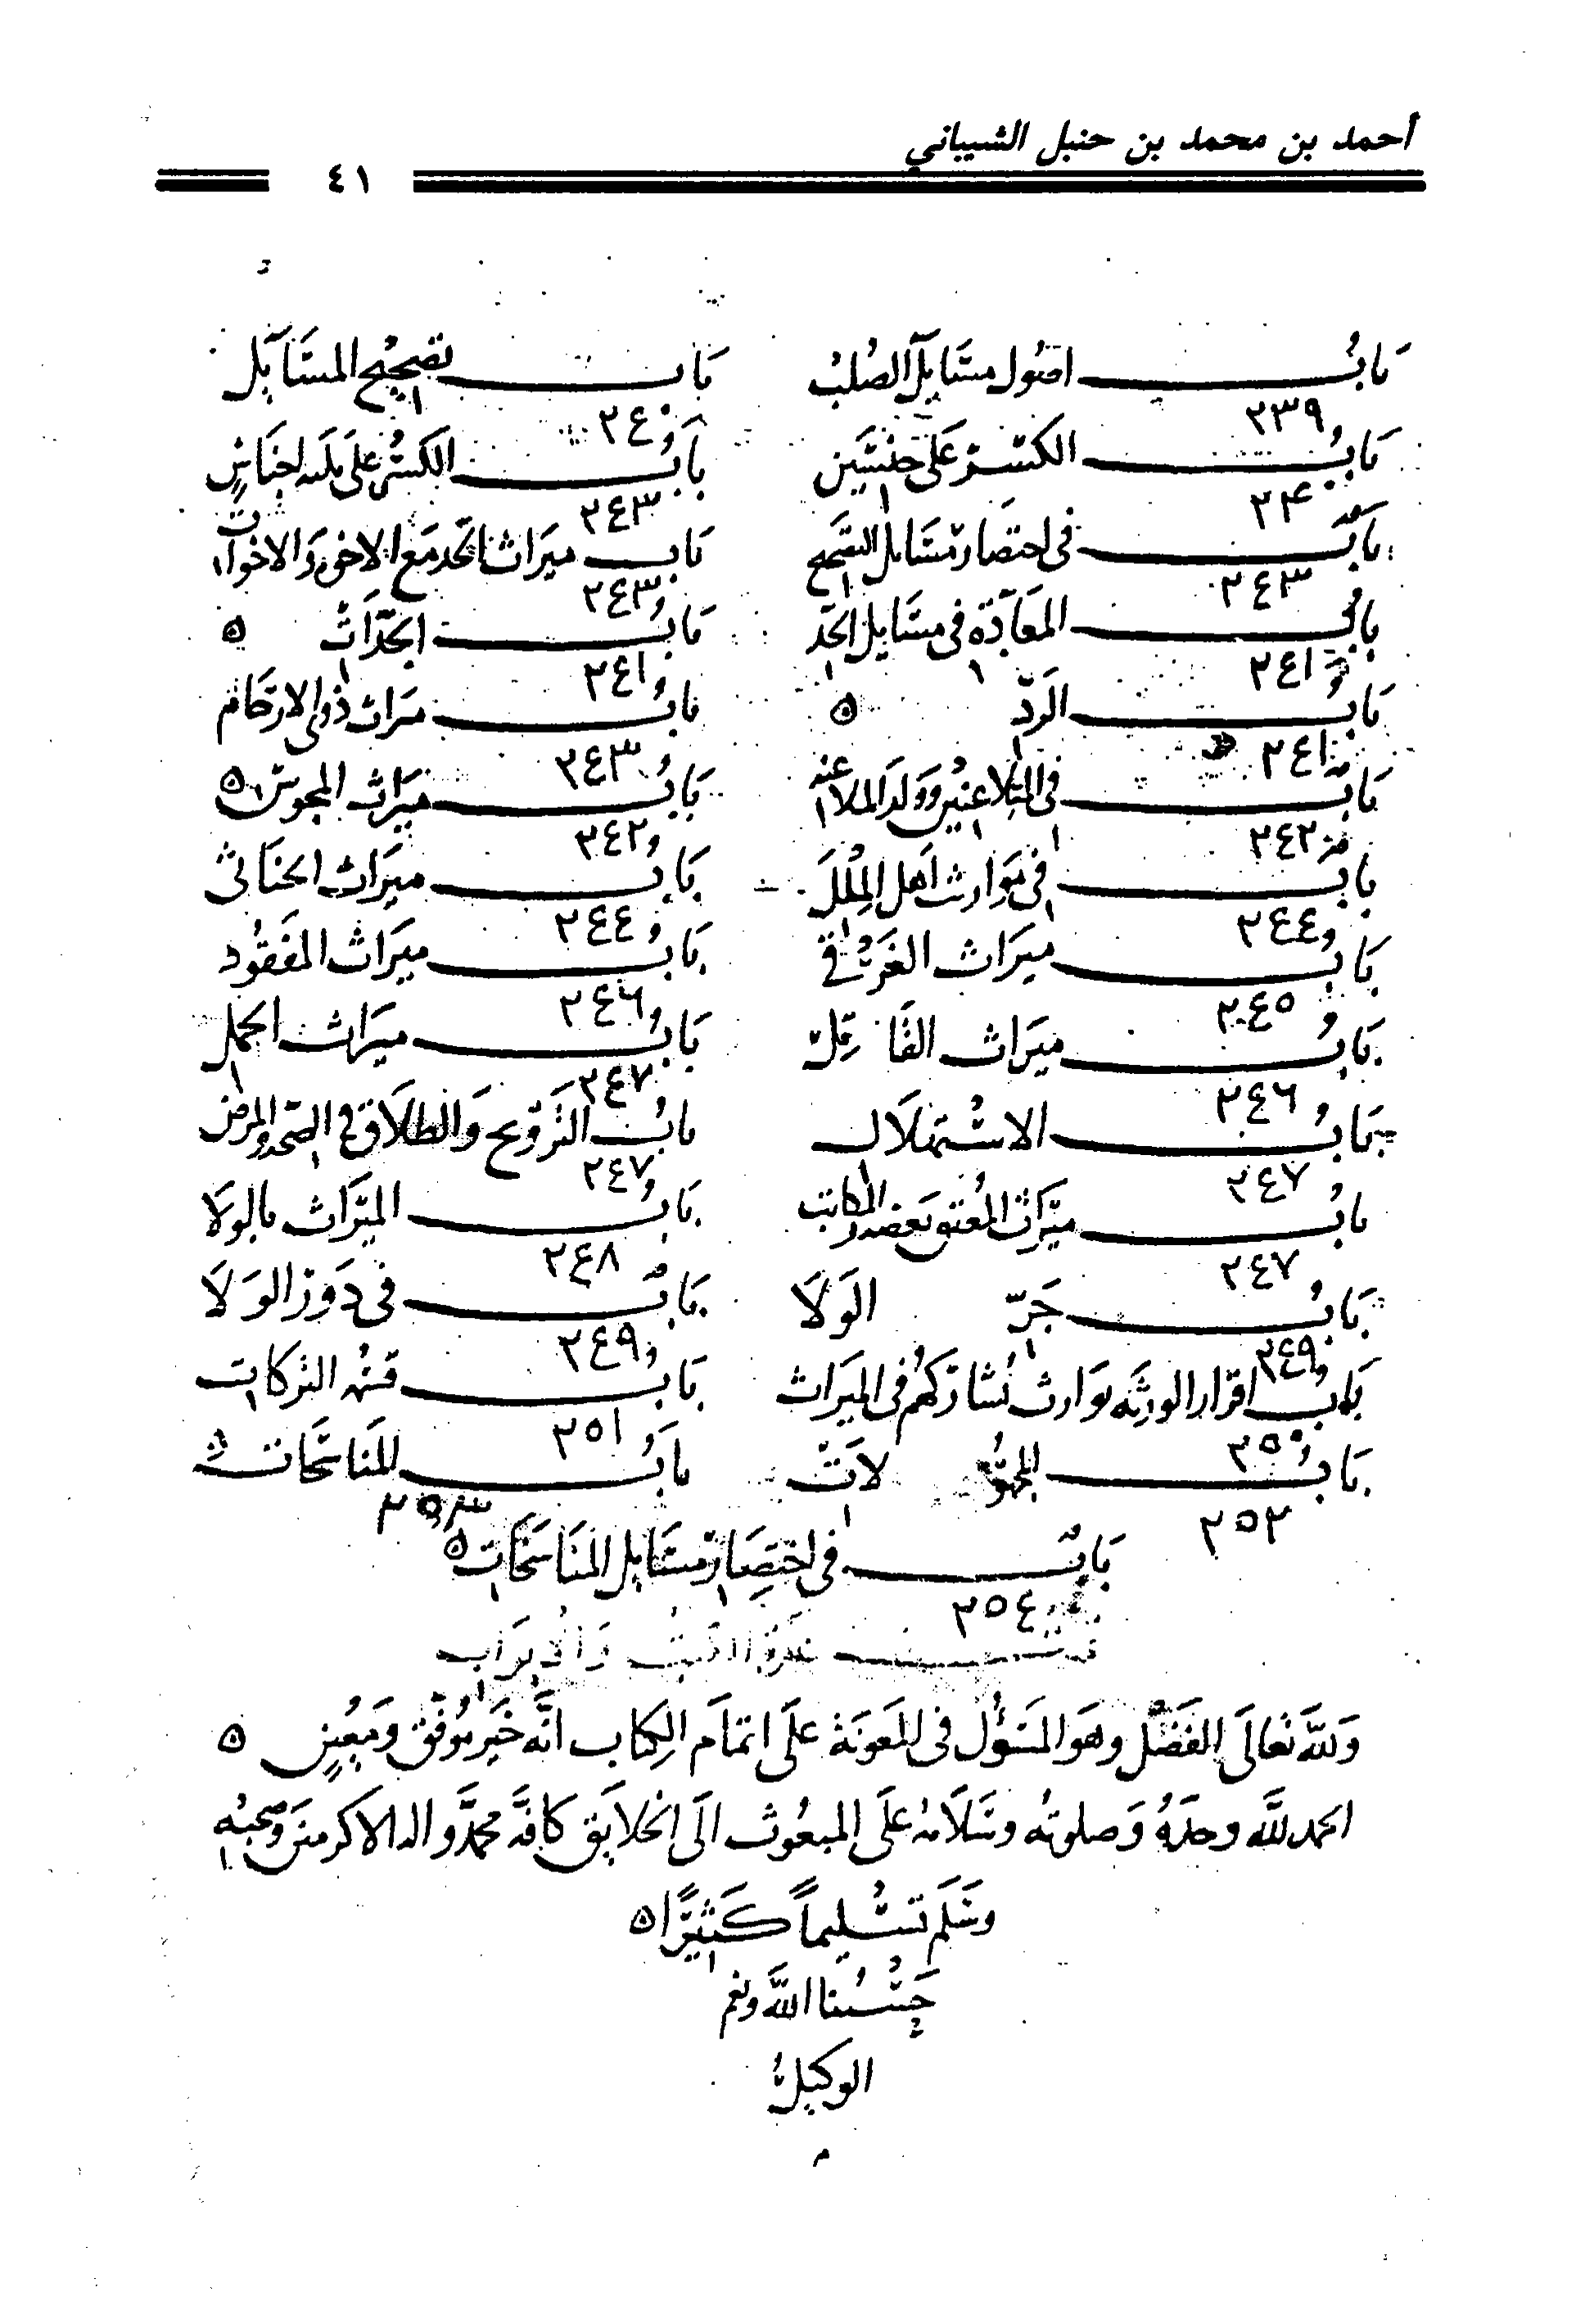 أحمد بن محمد بن حنبل الشيباني
٤١
باب اصول مسايل الصلب باب تصحيح المسايل
٢٣٩ ٢٤٠
باب الكسر على جنسين باب الكسر على ثلثه اجناس
٢٤٠ ٢٤٣
باب في اختصار مسايل التصحيح باب ميراث الجد مع الاخوه والاخوات
٢٤٣ ٢٤٣
باب المعادة في مسايل الجد باب الجدات ه
٢٤١ ٢٤١
باب الرد ه باب ميراث ذوي الارحام
٢٤١ ٢٤٣
باب في المتلاعنين وولد الملاعنه باب ميراث المجوس ه
٢٤٢ ٢٤٢
باب في توارث اهل الملل باب ميراث الخناثى
٢٤٤ ٢٤٤
باب ميراث الغرقى باب ميراث المفقود
٢٤٥ ٢٤٦
باب ميراث القاتل باب ميراث الحمل
٢٤٦ ٢٤٧
باب الاستهلال باب التزويج والطلاق في الصحه والمرض
٢٤٧ ٢٤٧
باب ميراث المعتق بعضه والمكاتب باب الميراث بالولا
٢٤٧ ٢٤٨
باب جر الولا باب في دور الولا
٢٤٩ ٢٤٩
باب اقرار الورثه بوارث يشاركهم في الميراث باب قسمه التركات
٢٥٠ ٢٥١
باب المجهولات باب المناسخات ه
٢٥٢ ٢٥٣
باب في اختصار مسايل المناسخات ه
٢٥٤
الكتب والابواب
ولله تعالى الفضل وهو المسؤل في المعونة على اتمام الكتاب انه خير موفق ومعين ه
الحمد لله وحده وصلوته وسلامه على المبعوث الى الخلايق كافة محمد واله الاكرمين وصحبه
وسلم تسليماً كثيرًا ه
حسبنا الله ونعم
الوكيل